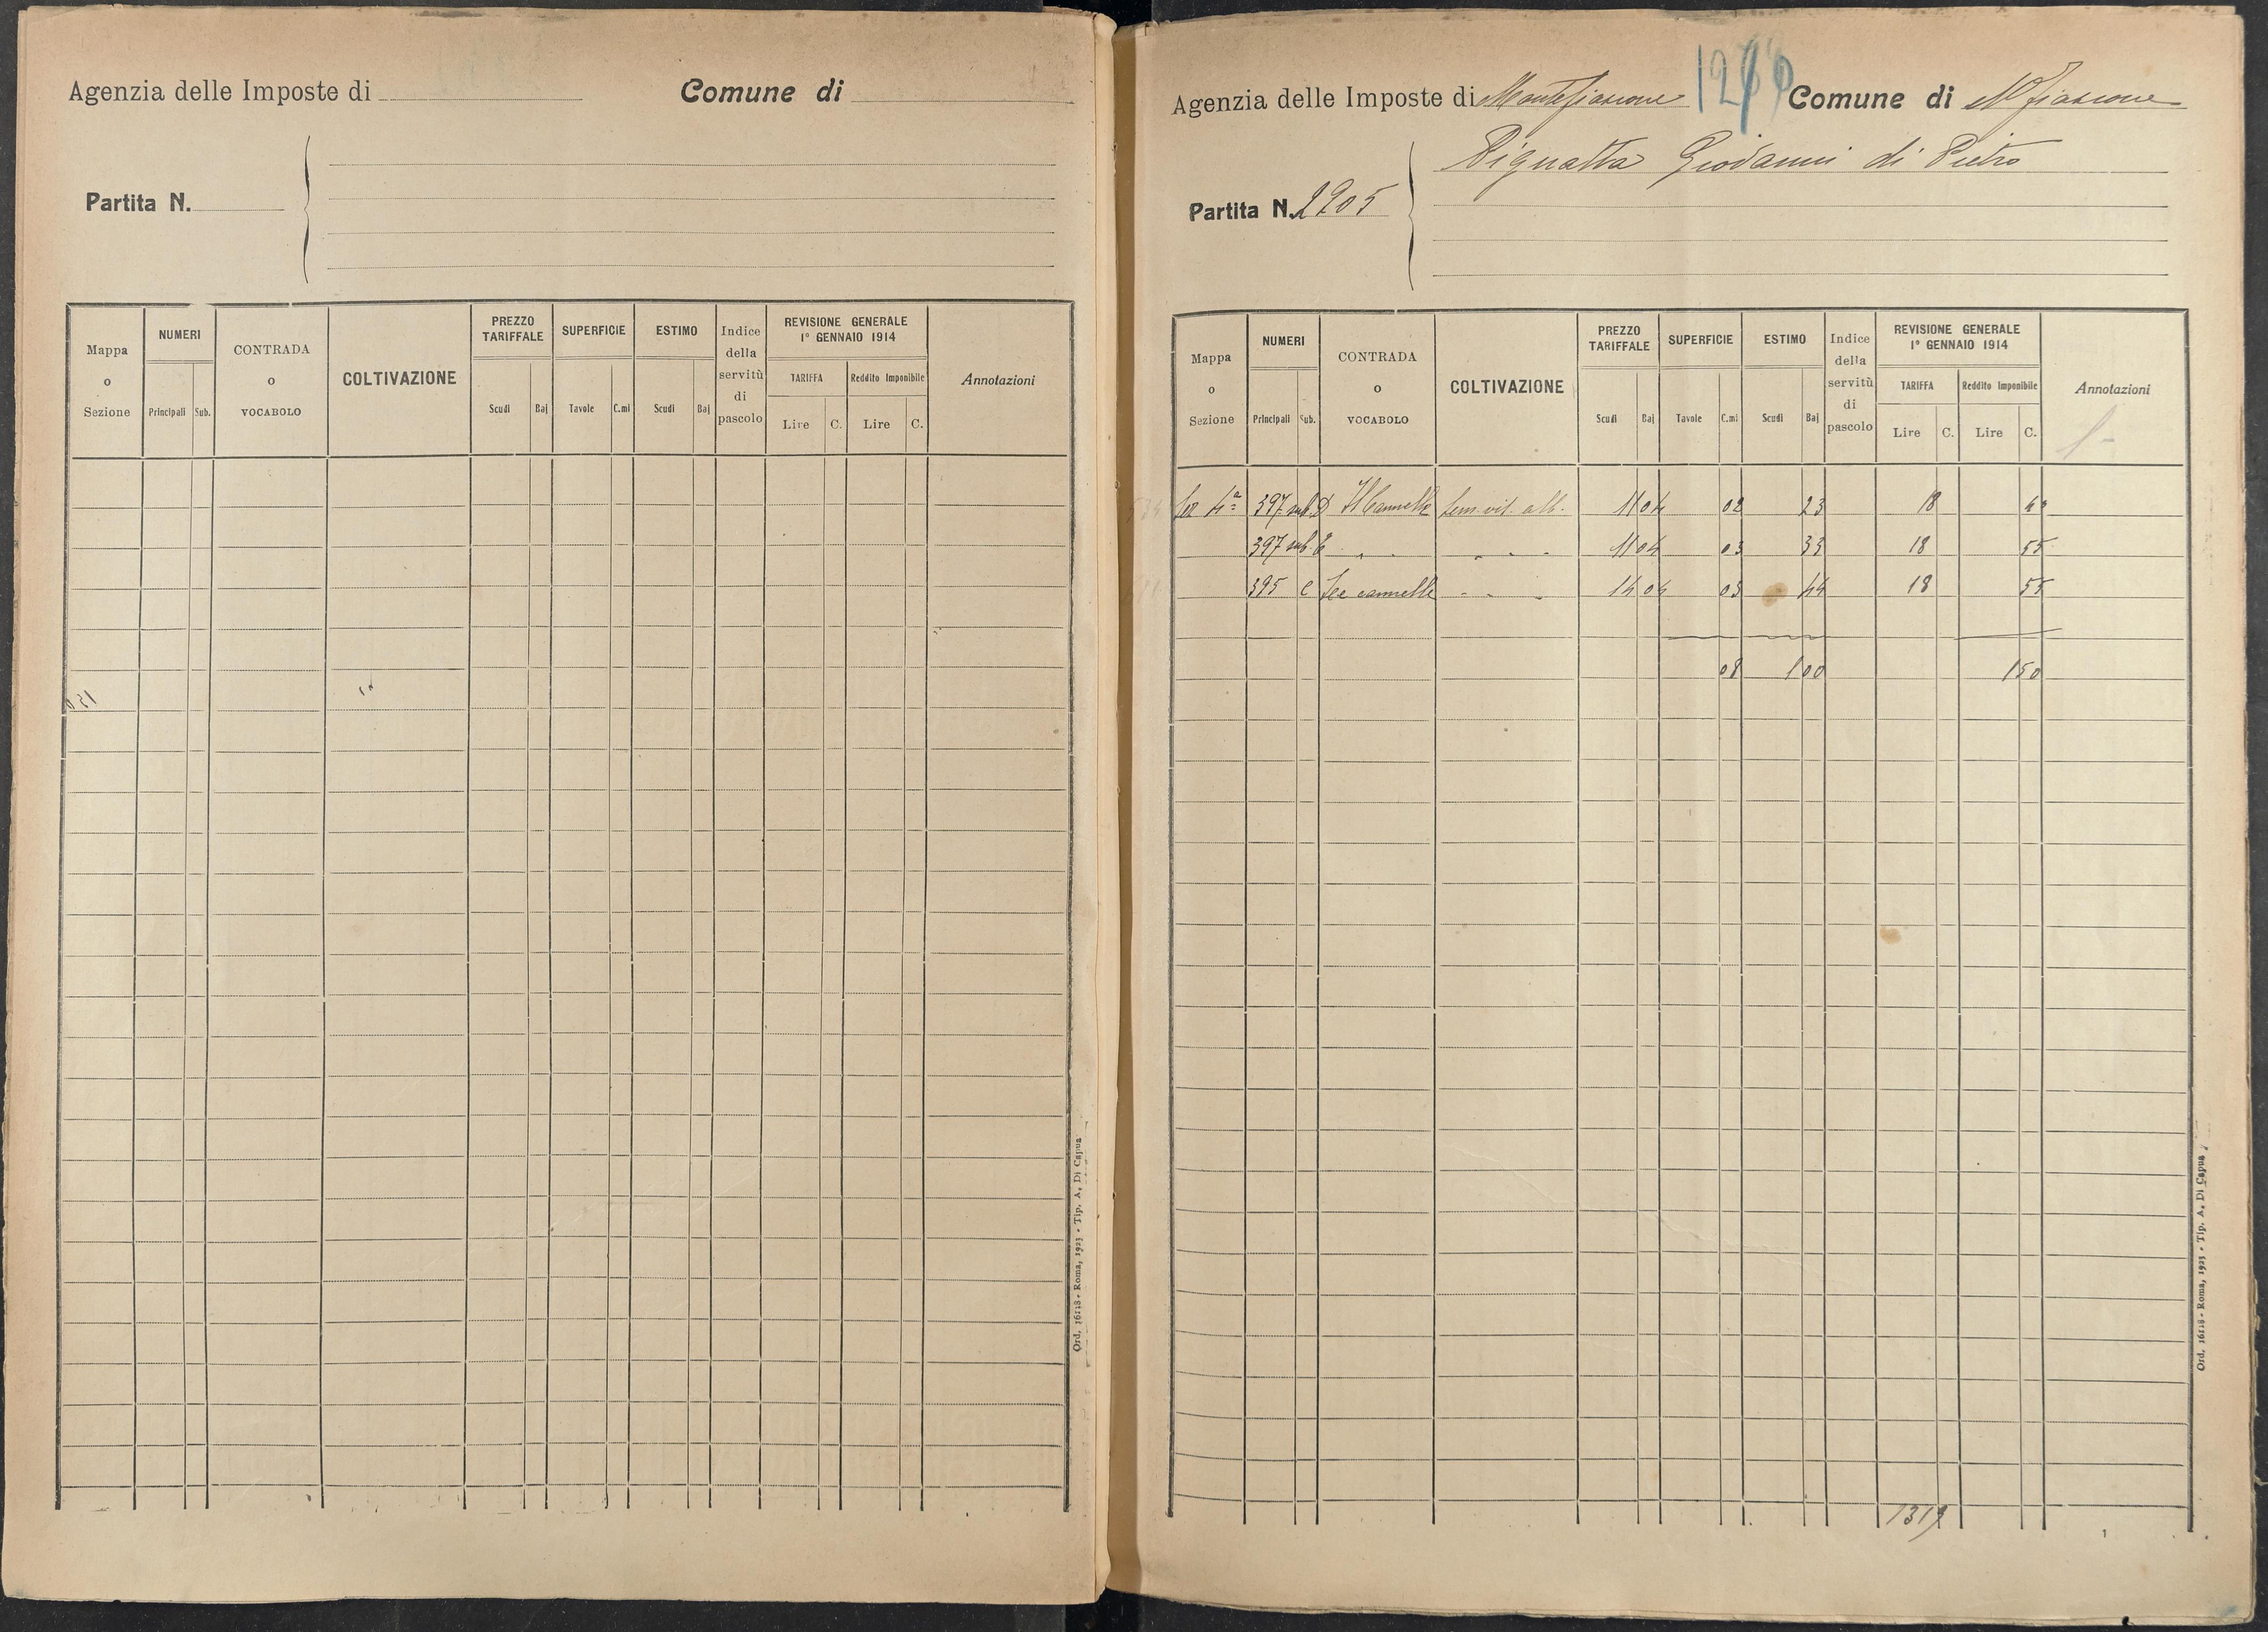 Agenzia delle Imposte di
Comune di
Partita N.
Mappa o Sezione
NUMERI
Principali Sub.
CONTRADA o VOCABOLO
COLTIVAZIONE
PREZZO TARIFFALE
Scudi Baj
SUPERFICIE
Tavole C.mi
ESTIMO
Scudi Baj
Indice della servitù di pascolo
REVISIONE GENERALE 1° GENNAIO 1914
TARIFFA
Lire C.
Reddito Imponibile
Lire C.
Annotazioni
Ord. 16118 - Roma, 1923 - Tip. A. Di Capua
Agenzia delle Imposte di Montefiascone
Comune di M Fiascone
Partita N. 2905
Pignatta Giovanni di Pietro
Mappa o Sezione
NUMERI
Principali Sub.
CONTRADA o VOCABOLO
COLTIVAZIONE
PREZZO TARIFFALE
Scudi Baj
SUPERFICIE
Tavole C.mi
ESTIMO
Scudi Baj
Indice della servitù di pascolo
REVISIONE GENERALE 1° GENNAIO 1914
TARIFFA
Lire C.
Reddito Imponibile
Lire C.
Annotazioni
Sez 4ª 397 sub. D Cannelle Sem. vit. alb. 11 04 02 23 18 40
397 sub. E " " " " " 11 04 03 33 18 55
395 C Le cannelle " " " 14 04 03 44 18 55
08 1 00 1 50
1319
1
Ord. 16118 - Roma, 1923 - Tip. A. Di Capua